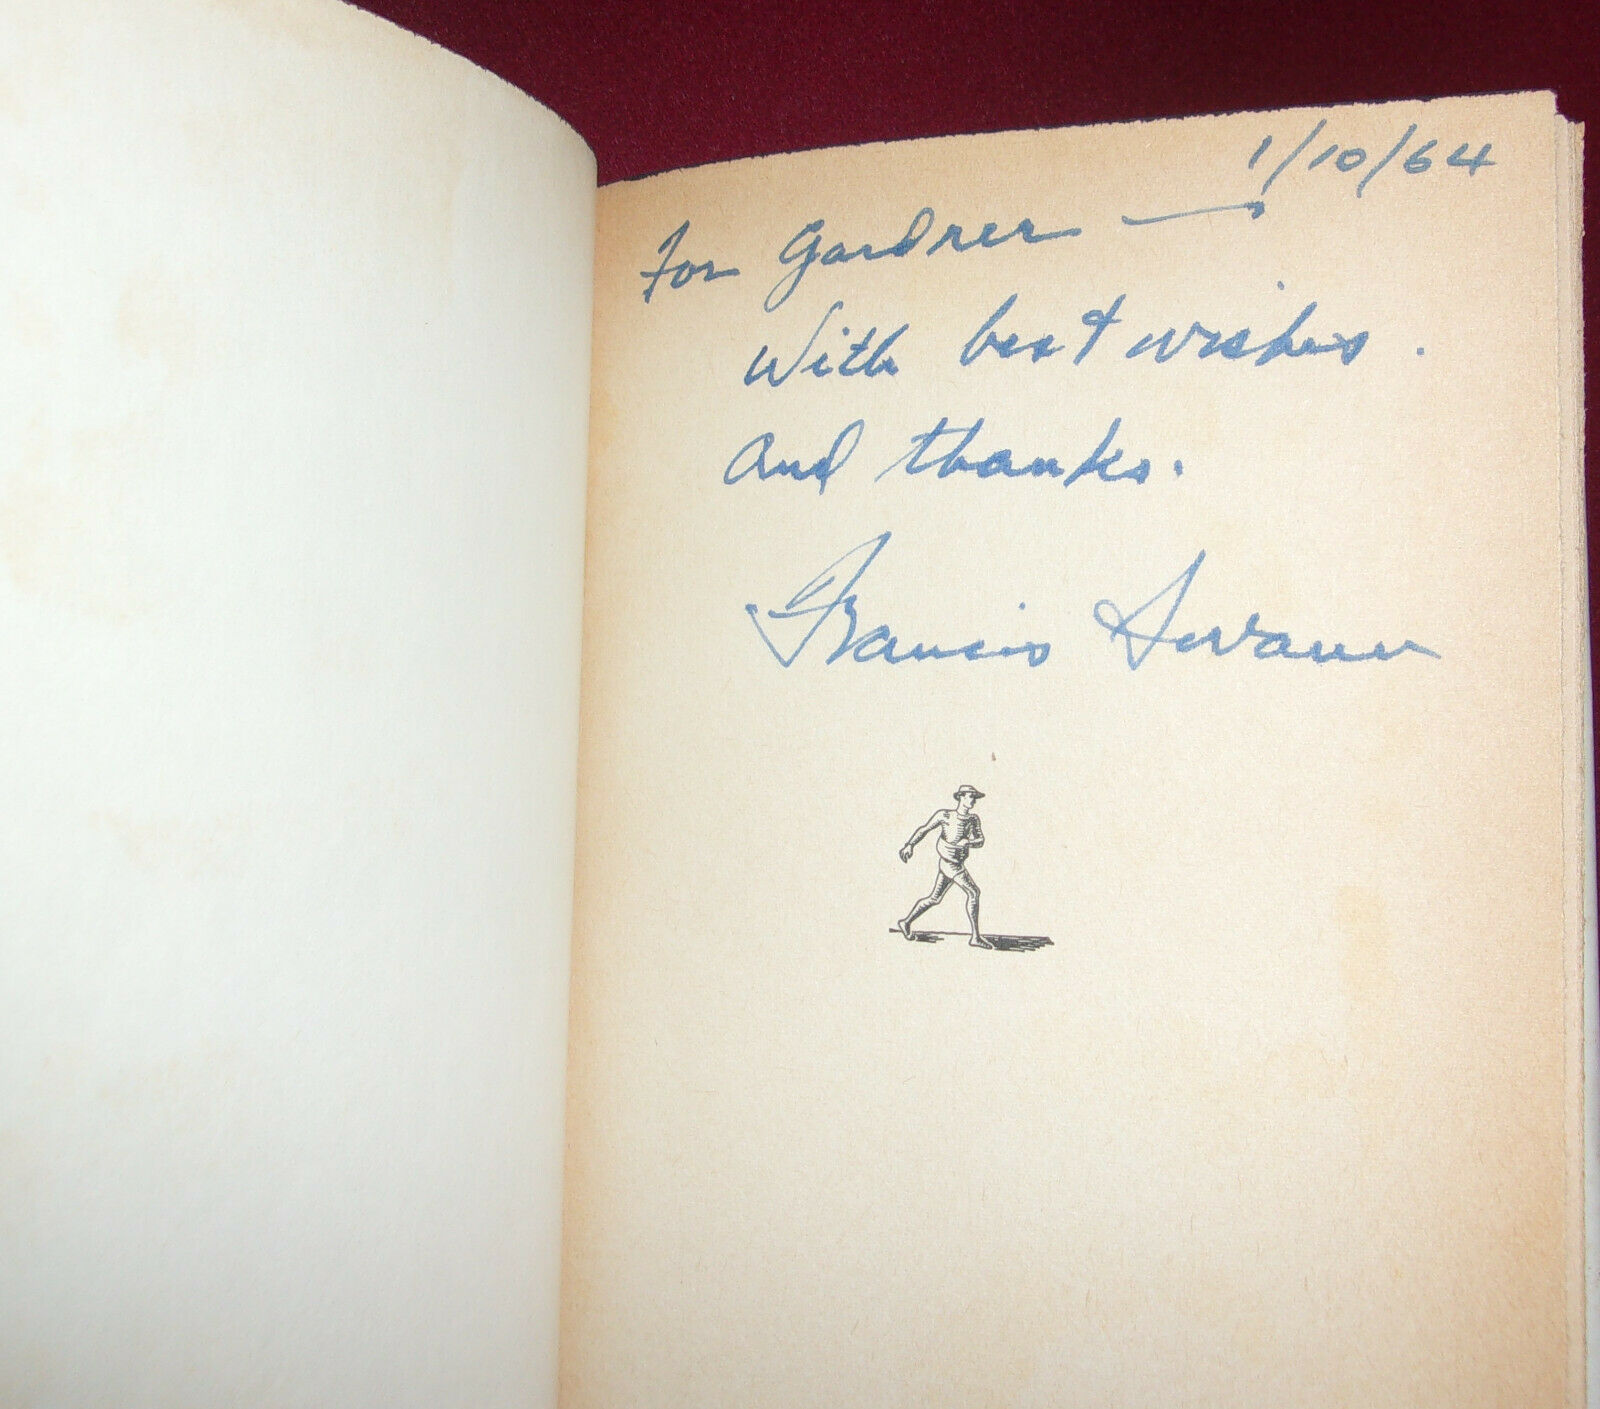 1/10/64
For Gardner —
With best wishes.
and thanks.
Francis Swann